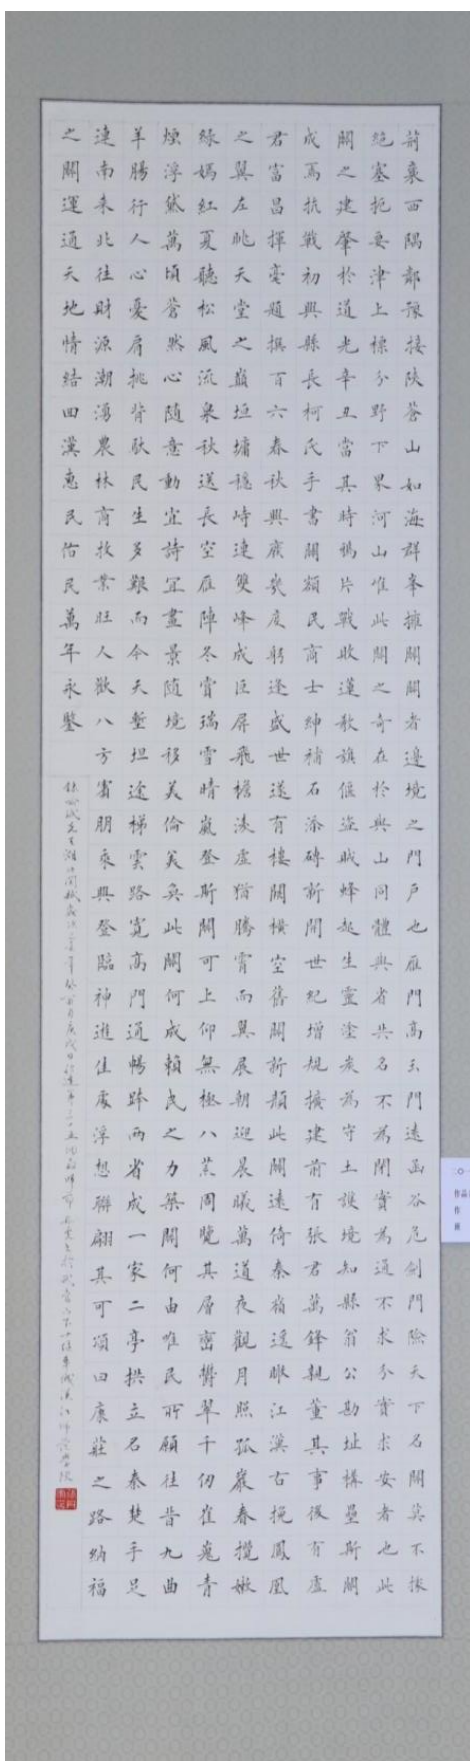 荊襄西隅鄰豫接陝蒼山如海群峯擁關關者邊境之門戶也雁門高玉門遠函谷危劍門險天下名關莫不據
絕塞扼要津上標分野下界河山唯此關之奇在於與山同體與省共名不為閉實為通不求分實求安者也此
關之建肇於道光辛丑當其時鴉片戰敗蓮教旗偃盜賊蜂起生靈塗炭為守土護境知縣翁公勘址構壘斯關
成焉抗戰初興縣長柯氏手書關額民商士紳補石添磚新開世紀增規擴建前有張君萬鋒親董其事後有盧
君富昌揮毫題撰百六春秋興廢幾度躬逢盛世遂有樓闕橫空舊關新顏此關遠倚秦嶺遥眺江漢古挽鳳凰
之翼左眺天堂之巔垣墉穩峙連雙峰成巨屏飛檐淩虛猶騰霄而翼展朝迎晨曦萬道夜觀月照孤嚴春攬嫩
綠嫣紅夏聽松風流泉秋送長空雁陣冬賞瑞雪晴嵐登斯關可上仰無極八荒周覽其層密鬱翠千仞崔嵬青
煙浮黛萬頃蒼然心隨意動宜詩宜畫景隨境移美倫美奐此關何成賴民之力築關何由唯民所願往昔九曲
羊腸行人心憂肩挑背馱民生多艱而今天塹坦途梯雲路寬高門通暢跨兩省成一家二亭拱立名秦楚手足
連南來北往財源潮湧農林商牧業旺人歡八方賓朋乘興登臨神進佳處浮想聯翩其可頌曰康莊之路納福
之關運通天地情結回漢惠民佑民萬年永鑒